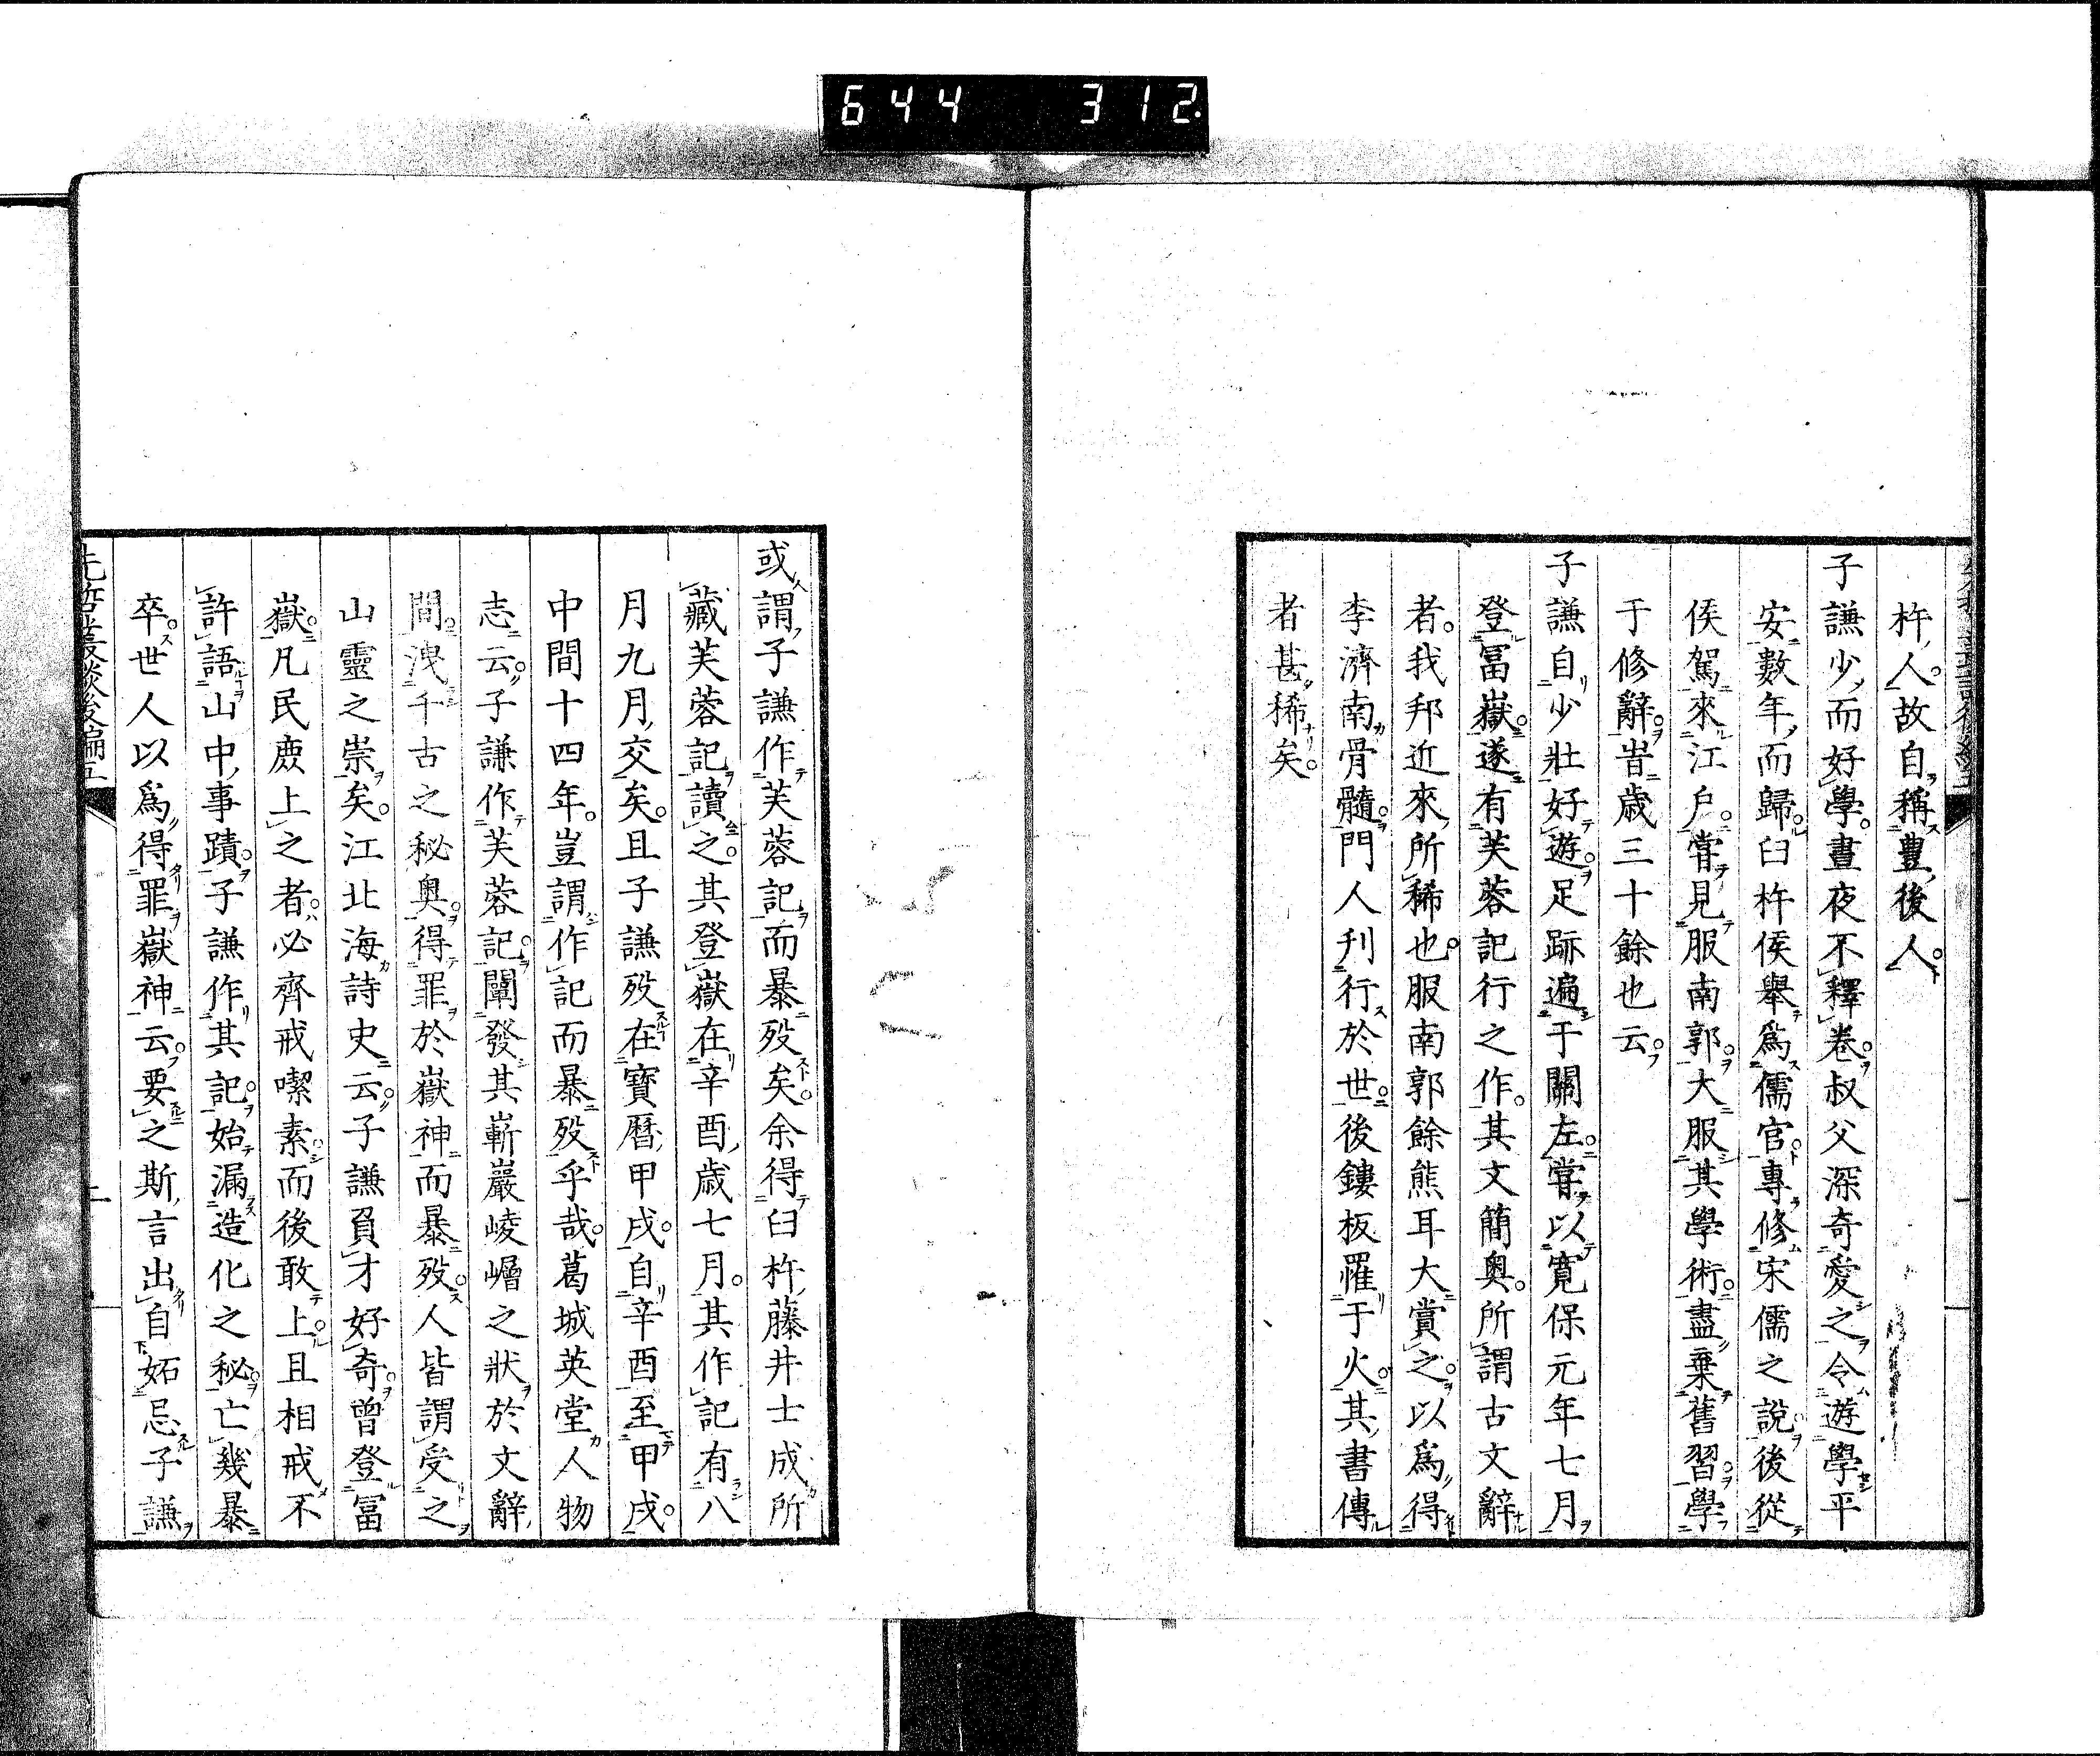 644 312
杵人故自稱豊後人
子謙少而好學晝夜不釋卷叔父深奇愛之令遊學平
安數年而歸臼杵侯舉爲儒官專修宋儒之說後從
侯駕來江戶嘗見服南郭大服其學術盡棄舊習學
于修辭旹歳三十餘也云
子謙自少壯好遊足跡遍于關左嘗以寬保元年七月
登冨嶽遂有芙蓉記行之作其文簡奧所謂古文辭
者我邦近來所稀也服南郭餘熊耳大賞之以爲得
李濟南骨髓門人刋行於世後鏤板罹于火其書傳
者甚稀矣
或謂子謙作芙蓉記而暴歿矣余得臼杵藤井士成所
藏芙蓉記讀之其登嶽在辛酉歳七月其作記有八
月九月交矣且子謙歿在寶曆甲戌自辛酉至甲戌
中間十四年豈謂作記而暴歿乎哉葛城英堂人物
志云子謙作芙蓉記闡發其嶄巖崚嶒之狀於文辭
間洩千古之秘奧得罪於嶽神而暴歿人皆謂受之
山靈之祟矣江北海詩史云子謙負才好奇曾登冨
嶽凡民庶上之者必齊戒潔素而後敢上且相戒不
許語山中事蹟子謙作其記始漏造化之秘亡幾暴
卒世人以爲得罪嶽神云要之斯言出自妬忌子謙
先哲叢談後編五